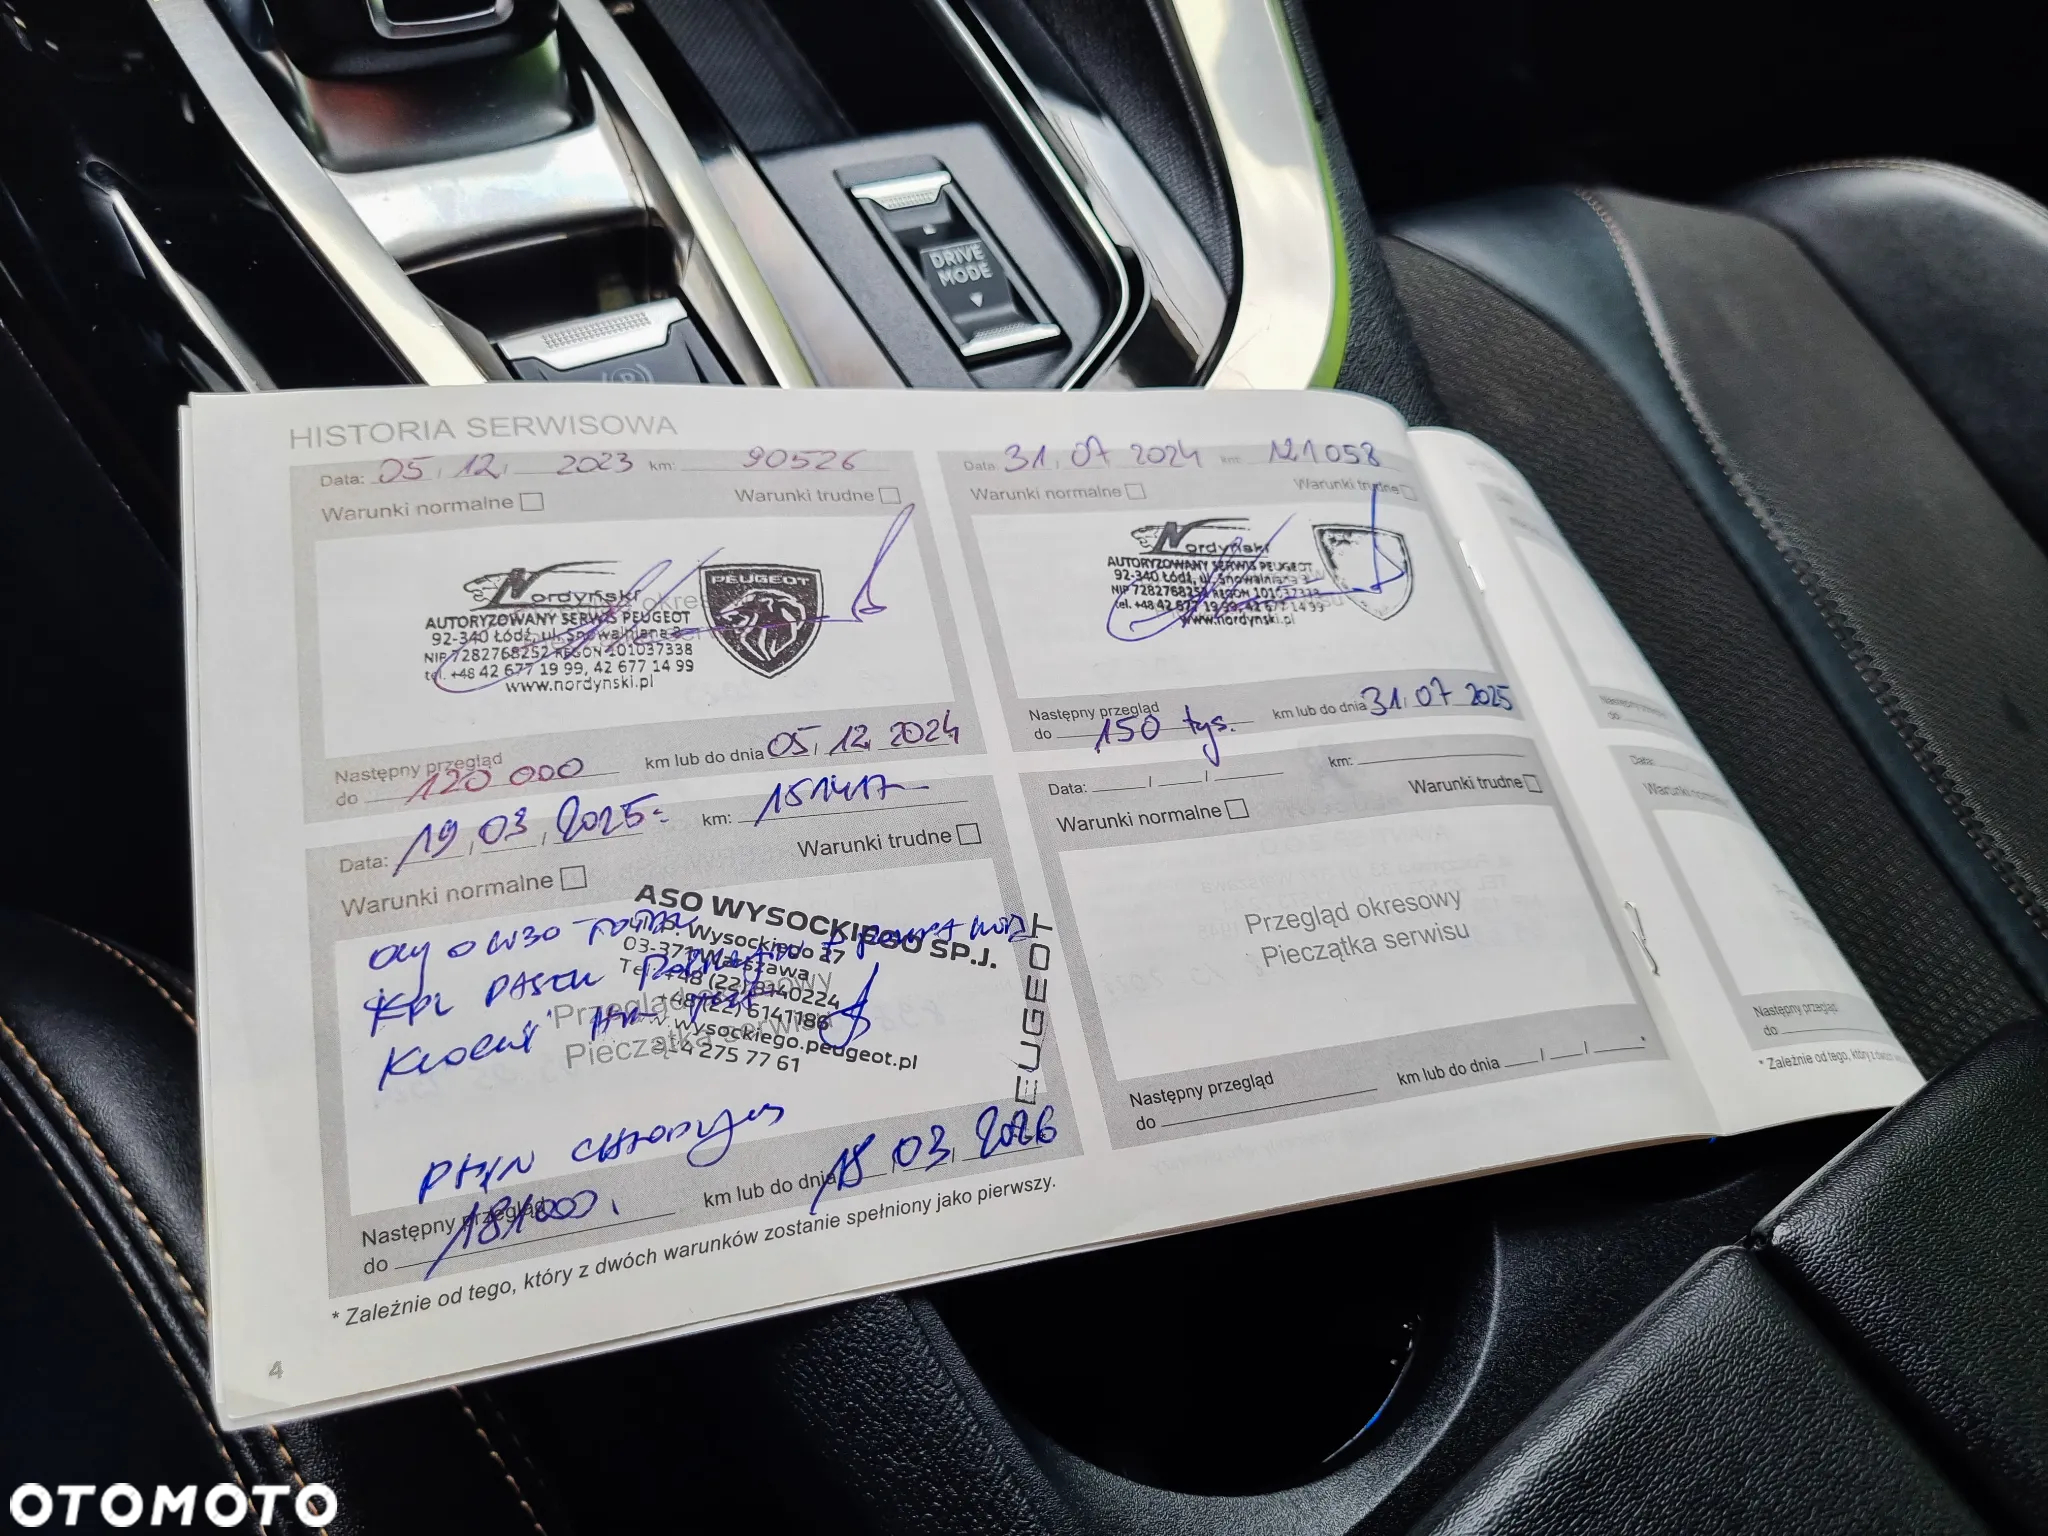 DRIVE
MODE
HISTORIA SERWISOWA
Data: 05, 12, 2023 km: 90526
Warunki normalne Warunki trudne
Nordyński
PEUGEOT
AUTORYZOWANY SERWIS PEUGEOT
92-340 Łódź, ul. Snowalniana 3
NIP 7282768252 REGON 101037338
tel. +48 42 677 19 99, 42 677 14 99
www.nordynski.pl
Następny przegląd
do 120 000 km lub do dnia 05, 12, 2024
Data: 31, 07 2024 km: 121058
Warunki normalne Warunki trudne
Nordyński
AUTORYZOWANY SERWIS PEUGEOT
92-340 Łódź, ul. Snowalniana 3
NIP 7282768252 REGON 101037338
tel. +48 42 677 19 99, 42 677 14 99
www.nordynski.pl
Następny przegląd
do 150 tys. km lub do dnia 31, 07 2025
Data: 19, 03, 2025 km: 151417
Warunki normalne Warunki trudne
ASO WYSOCKIEGO SP.J.
Wysockiego 27
03-371 Warszawa
Tel.: +48 (22) 8140224
+48 (22) 6141186
wysockiego.peugeot.pl
275 77 61
PEUGEOT
Przegląd okresowy
Pieczątka serwisu
KPL
PŁYN
Następny przegląd
do 181000. km lub do dnia 18, 03, 2026
Data: / / km:
Warunki normalne Warunki trudne
Przegląd okresowy
Pieczątka serwisu
Następny przegląd
do km lub do dnia / / *
* Zależnie od tego, który z dwóch warunków zostanie spełniony jako pierwszy.
4
Data:
Następny przegląd
do
* Zależnie od tego, który z
OTOMOTO